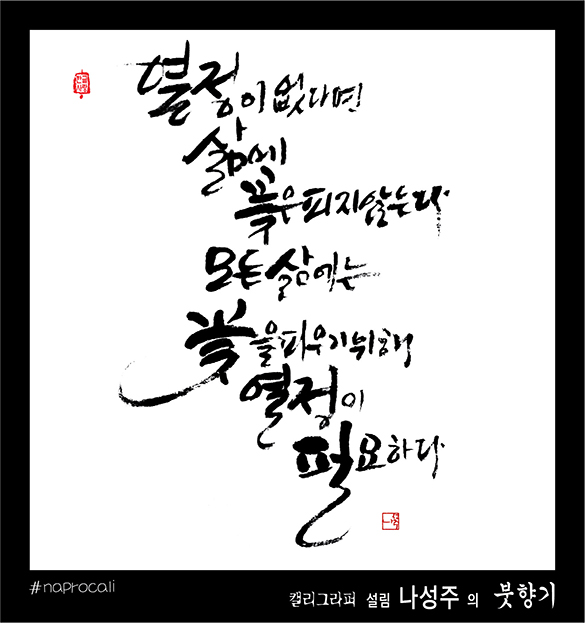 열정이 없다면
삶에
꽃은 피지 않는다
모든 삶에는
꽃을 피우기 위해
열정이
필요하다
#naprocali
캘리그라퍼 설림 나성주 의 붓향기